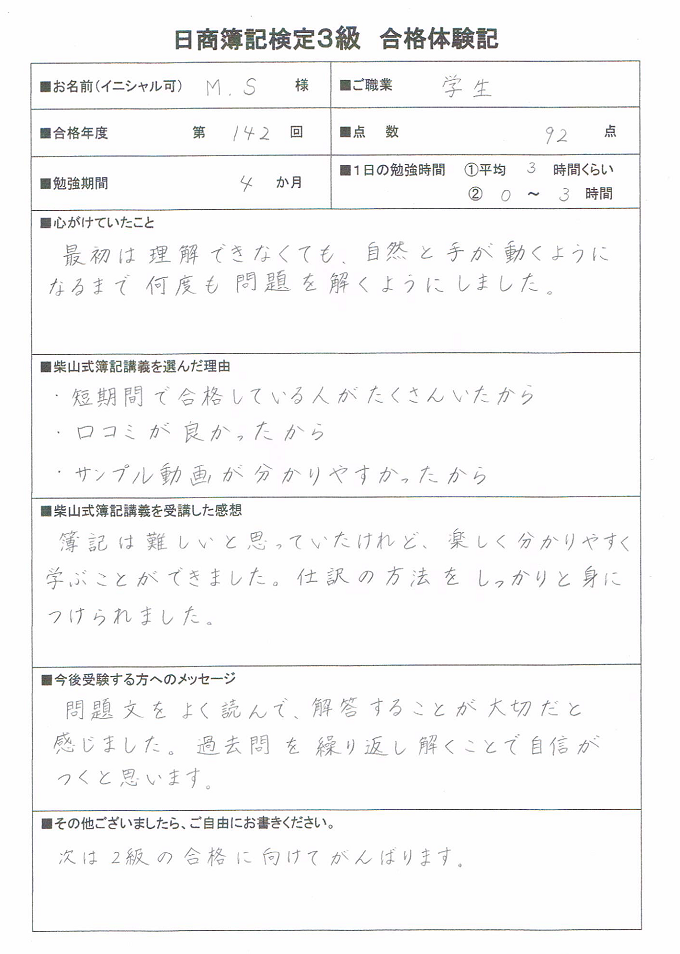 日商簿記検定3級 合格体験記
■お名前（イニシャル可） M.S 様 ■ご職業 学生
■合格年度 第 142 回 ■点 数 92 点
■勉強期間 4 か月 ■1日の勉強時間 ①平均 3 時間くらい
② 0 ～ 3 時間
■心がけていたこと
最初は理解できなくても、自然と手が動くように
なるまで何度も問題を解くようにしました。
■柴山式簿記講義を選んだ理由
・短期間で合格している人がたくさんいたから
・口コミが良かったから
・サンプル動画が分かりやすかったから
■柴山式簿記講義を受講した感想
簿記は難しいと思っていたけれど、楽しく分かりやすく
学ぶことができました。仕訳の方法をしっかりと身に
つけられました。
■今後受験する方へのメッセージ
問題文をよく読んで、解答することが大切だと
感じました。過去問を繰り返し解くことで自信が
つくと思います。
■その他ございましたら、ご自由にお書きください。
次は2級の合格に向けてがんばります。